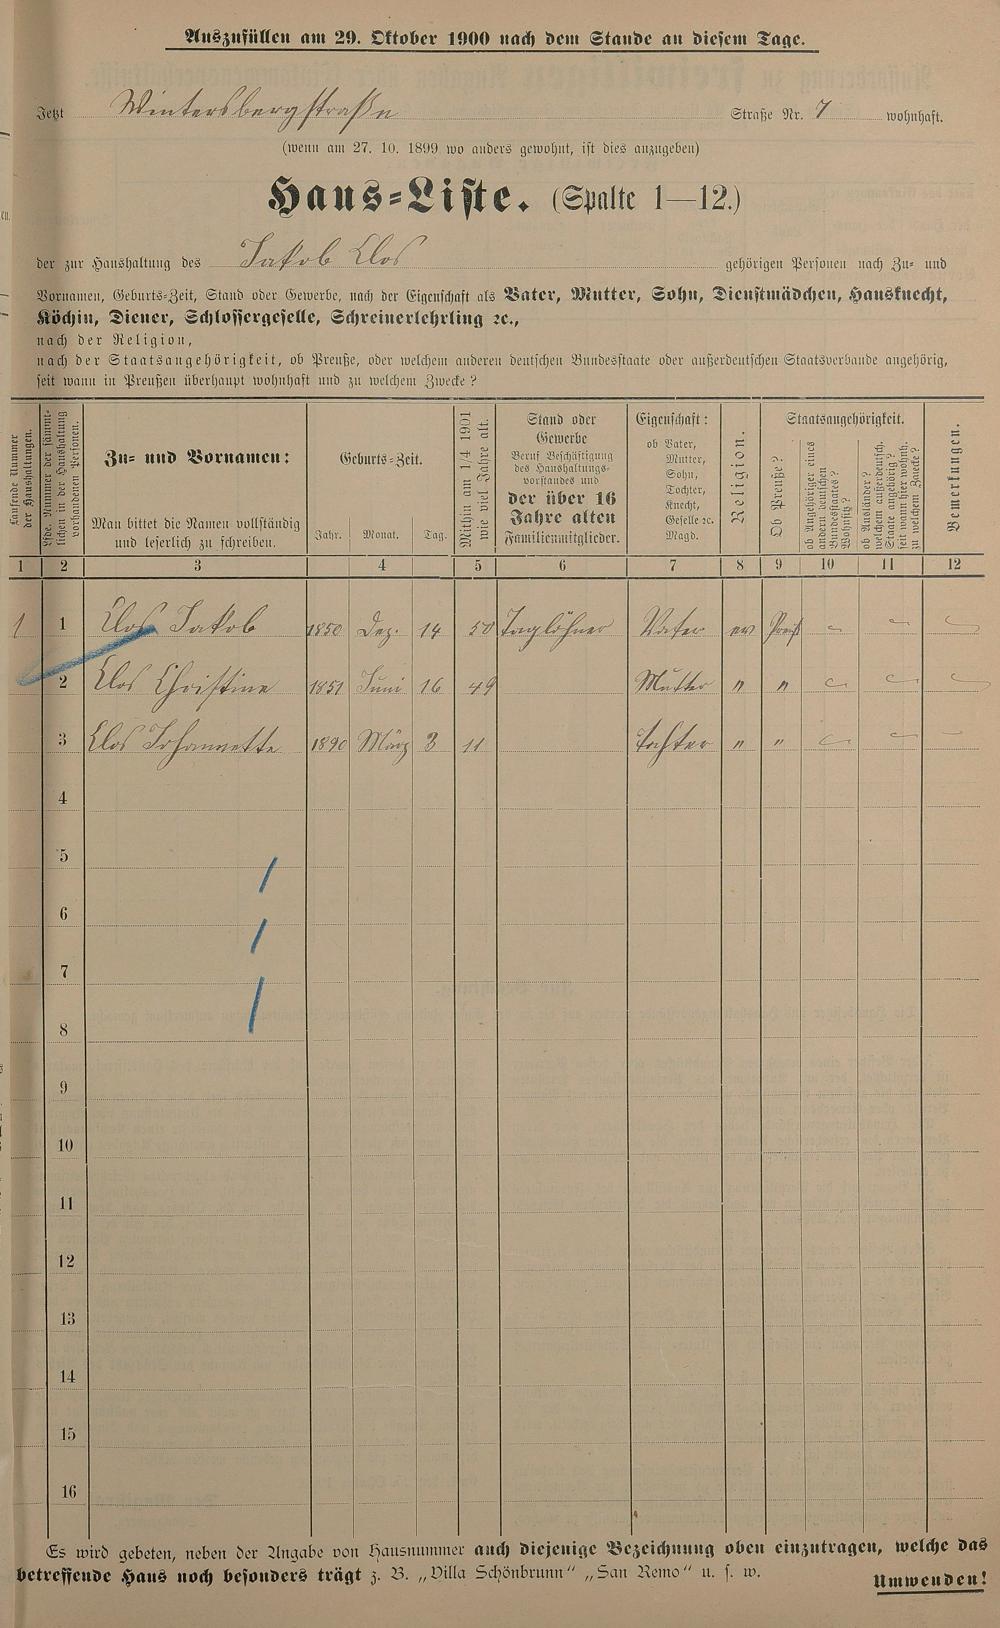 Auszufüllen am 29. Oktober 1900 nach dem Stande an diesem Tage.
Jetzt Wintersbergstraße Straße Nr. 7 wohnhaft.
(wenn am 27. 10. 1899 wo anders gewohnt, ist dies anzugeben)
Haus-Liste. (Spalte 1—12.)
der zur Haushaltung des Jakob Clos gehörigen Personen nach Zu- und
Vornamen, Geburts-Zeit, Stand oder Gewerbe, nach der Eigenschaft als Vater, Mutter, Sohn, Dienstmädchen, Hausknecht,
Köchin, Diener, Schlossergeselle, Schreinerlehrling ꝛc.,
nach der Religion,
nach der Staatsangehörigkeit, ob Preuße, oder welchem anderen deutschen Bundesstaate oder außerdeutschen Staatsverbande angehörig,
seit wann in Preußen überhaupt wohnhaft und zu welchem Zwecke?
Laufende Nummer der Haushaltungen.
Lfde. Nummer der sämmtlichen in der Haushaltung vorhandenen Personen.
Zu- und Vornamen:
Man bittet die Namen vollständig
und leserlich zu schreiben.
Geburts-Zeit.
Jahr. Monat. Tag.
Mithin am 1/4 1901
wie viel Jahre alt.
Stand oder
Gewerbe
Beruf Beschäftigung
des Haushaltungs-
vorstandes und
der über 16
Jahre alten
Familienmitglieder.
Eigenschaft:
ob Vater,
Mutter,
Sohn,
Tochter,
Knecht,
Geselle ꝛc.
Magd.
Religion.
Staatsangehörigkeit.
Ob Preuße?
ob Angehöriger eines
andern deutschen
Bundesstaates?
Wohnsitz?
ob Ausländer?
welchem außerdeutsch.
Staate angehörig?
seit wann hier wohnh.
zu welchem Zwecke?
Bemerkungen.
1 2 3 4 5 6 7 8 9 10 11 12
1 1 Clos Jakob 1850 Dez. 14 50 Taglöhner Vater ev Preuß
2 Clos Christine 1851 Juni 16 49 Mutter " "
3 Clos Johannette 1890 März 3 11 Tochter " "
4
5
6
7
8
9
10
11
12
13
14
15
16
Es wird gebeten, neben der Angabe von Hausnummer auch diejenige Bezeichnung oben einzutragen, welche das
betreffende Haus noch besonders trägt z. B. „Villa Schönbrunn" „San Remo" u. s. w.
Umwenden!